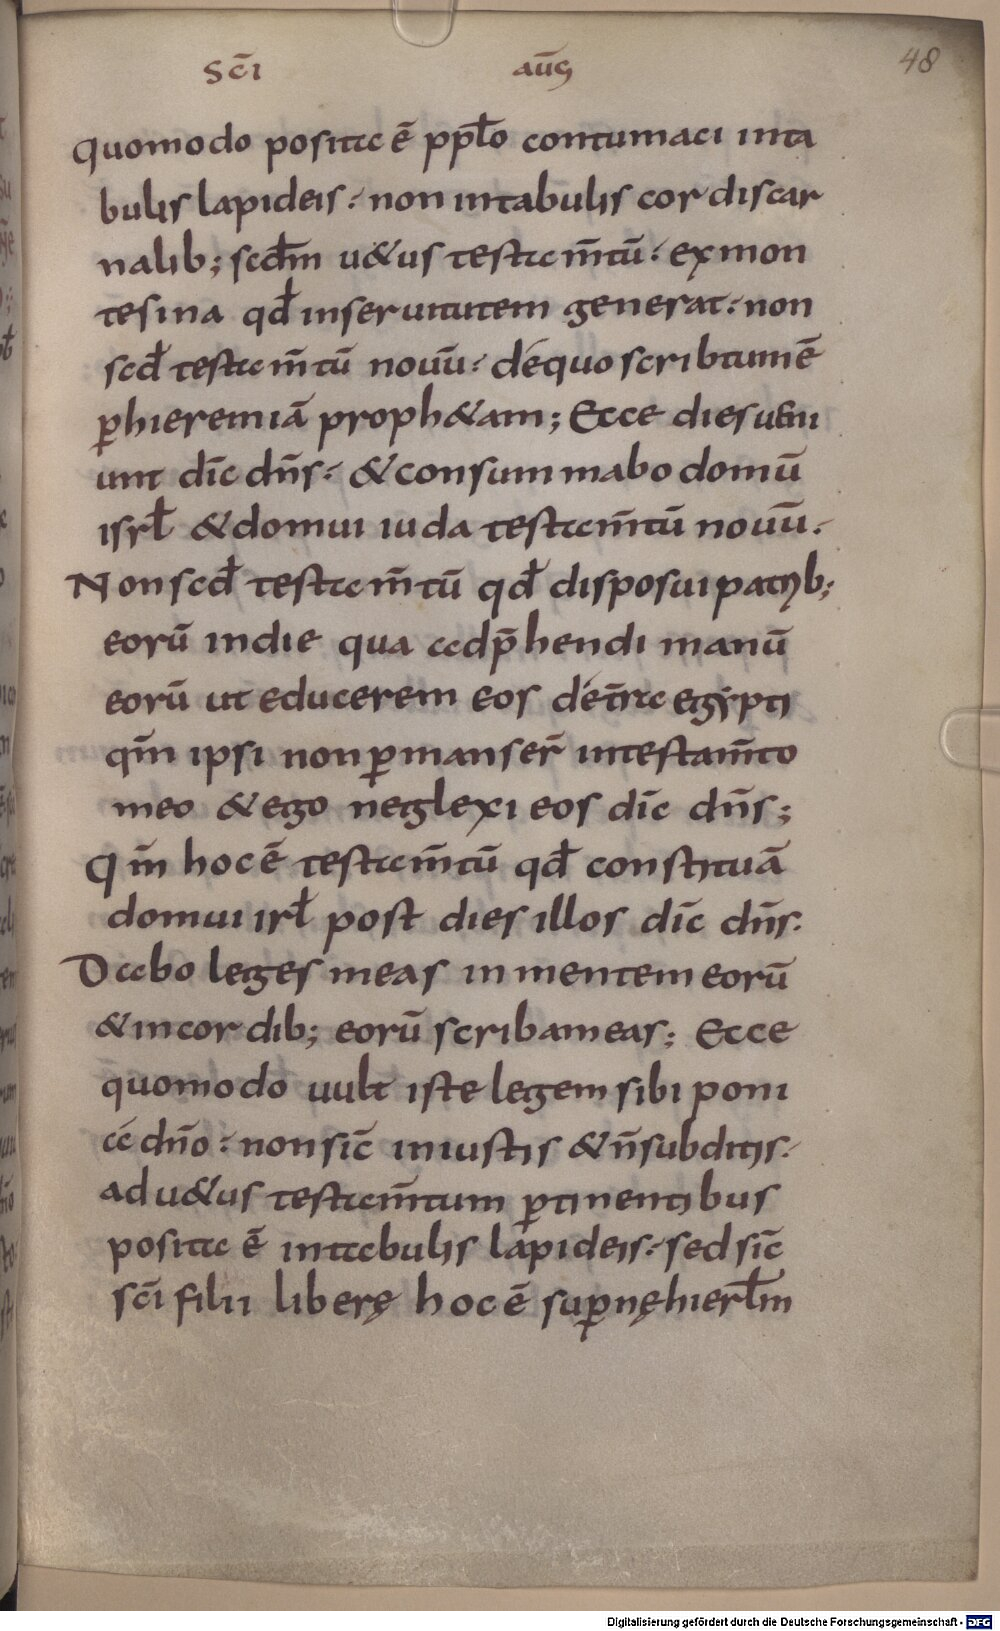 Scī aūg 48
quomodo posita ē ppło contumaci inta
bulis lapideis: non intabulis cordiscar
nalib; scdm̄ u&us testam̄tū: exmon
tesina qđ inseruitutem generat: non
scđ testam̄tū nouū: dequo scribtum ē
ꝑhieremiā proph&am; Ecce dies ueni
unt dīc dn̄s: &consummabo domū
isrł &domui iuda testam̄tū nouū:
Non scđ testam̄tū qđ disposui patrib;
eorū indie qua adp̄hendi manū
eorū ut educerem eos det̄ra egypti
qm̄ ipsi nonꝑmanser̄ intestam̄to
meo &ego neglexi eos dīc dn̄s;
Qm̄ hoc ē testam̄tū qđ constituā
domui irł post dies illos dīc dn̄s.
Dabo leges meas inmentem eorū
&incordib; eorū scribameas; Ecce
quomodo uult iste legem sibi poni
a dn̄o: non sic̄ iniustis &n̄subditis:
ad u&us testam̄tum ꝑtinentibus
posita ē intabulis lapideis: sed sic̄
scī filii liberę hoc ē suꝑnęhierłm
Digitalisierung gefördert durch die Deutsche Forschungsgemeinschaft - DFG